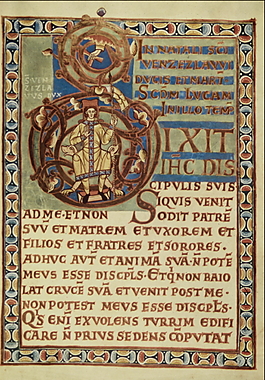 N NATALI SCI
DVCIS
IXIT
IHC DIS
CIPULIS SUIS
SIQUIS VENIT
AD ME·ET NON ODIT PATRĒ
SUV ET MATREM ET UXOREM ET
FILIOS ET FRATRES ET SORORES·
ADHUC AUT ET ANIMĀ SUĀ·N POTĒ
MEUS ESSE DISCPLS· ET QI NON BAIO
LAT CRUCĒ SUĀ ET VENIT POST ME·
NON POTEST MEUS ESSE DISCPLS·
QIS ENI EX VOLENS TURRIM EDIFI
CARE N PRIUS SEDENS COPUTAT